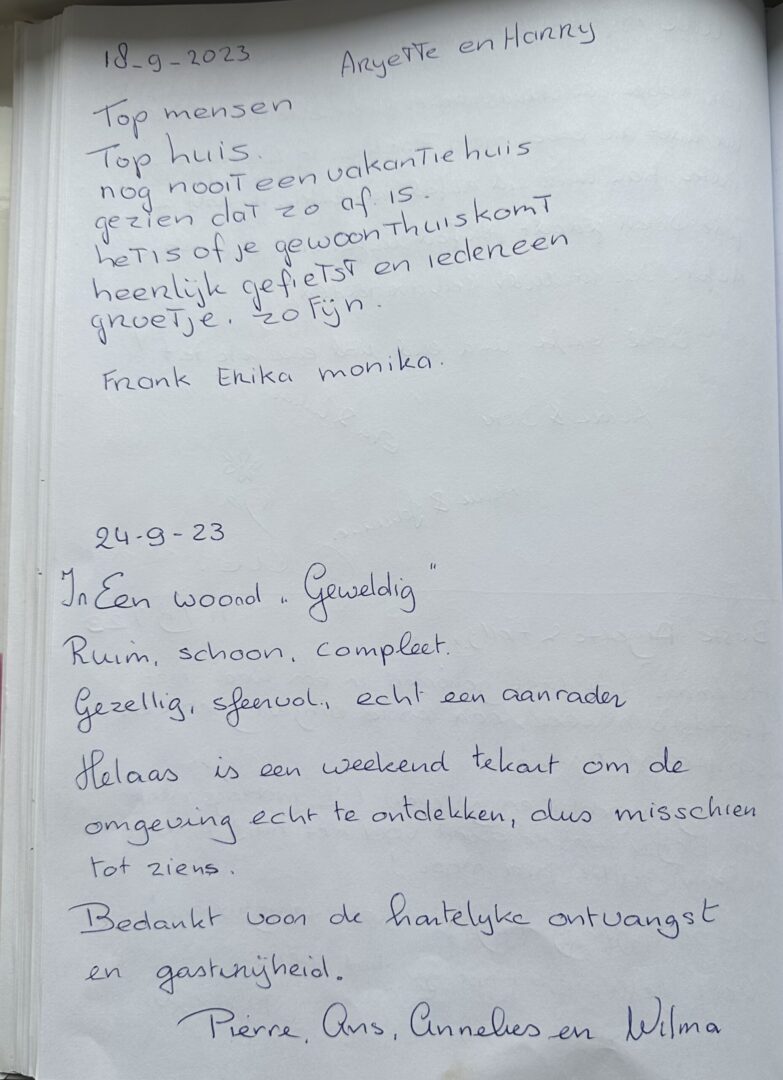 18-9-2023 Aryette en Harry
Top mensen
Top huis.
nog nooit een vakantiehuis
gezien dat zo af is.
het is of je gewoon thuiskomt
heerlijk gefietst en iedereen
groetje. zo fijn.
Frank Erika monika.
24-9-23
In Een woord „Geweldig"
Ruim, schoon, compleet.
Gezellig, sfeervol., echt een aanrader
Helaas is een weekend tekort om de
omgeving echt te ontdekken, dus misschien
tot ziens.
Bedankt voor de hartelyke ontvangst
en gastvrijheid.
Pierre, Ans, Annelies en Wilma